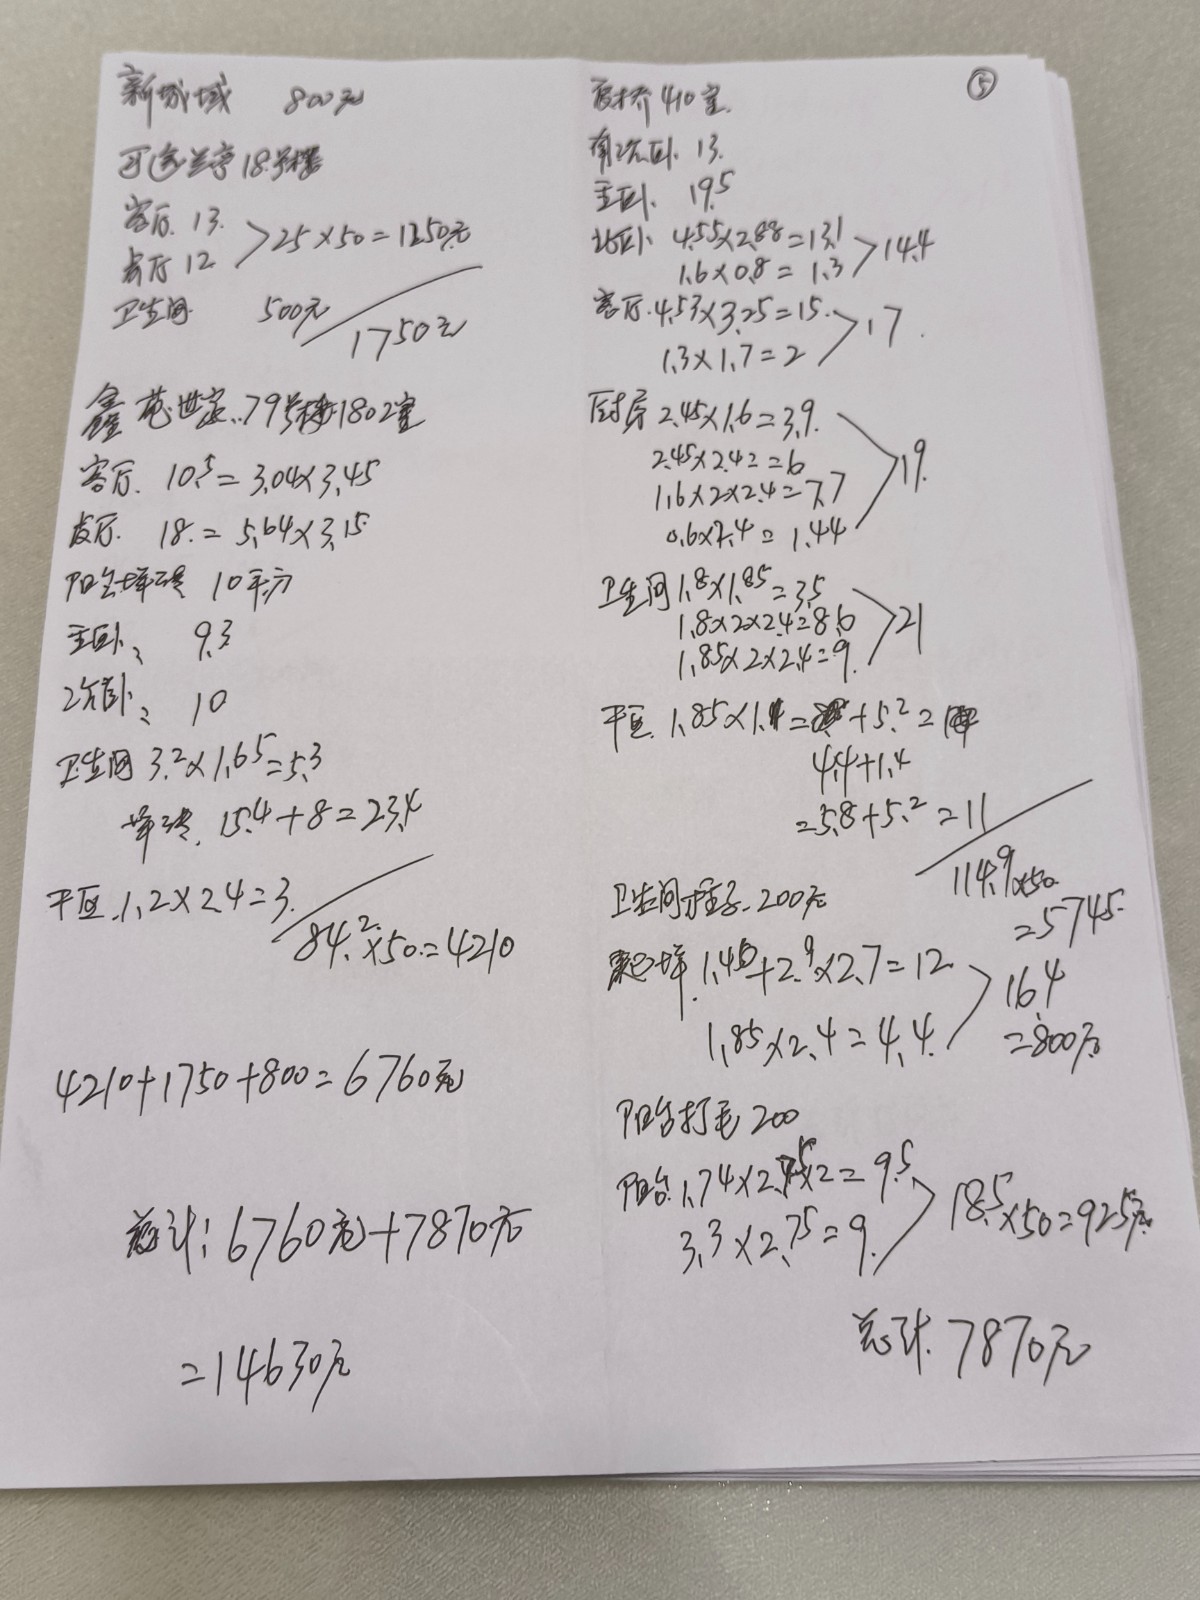 新城域 800元
18号楼
客厅. 13.
餐厅 12 >25×50=1250元
卫生间 500元
1750元
鑫苑世家..79号楼1802室
客厅. 10.5=3.04×3.45
餐厅. 18.=5.64×3.15
阳台墙砖 10平方
主卧、 9.3
次卧、 10
卫生间 3.2×1.65=5.3
墙砖. 15.4+8=23.4
干区.1.2×2.4=3.
84.2×50.=4210
4210+1750+800=6760元
总计:6760元+7870元
=14630元
⑤
410室.
南次卧. 13.
主卧. 19.5
北卧. 4.55×2.88=13.1
1.6×0.8=1.3 >14.4
客厅.4.53×3.25=15.
1.3×1.7=2 >17.
厨房 2.45×1.6=3.9.
2.45×2.4==6
1.6×2×2.4=7.7
0.6×2.4=1.44 >19.
卫生间1.8×1.85=3.5
1.8×2×2.4=8.6
1.85×2×2.4=9. >21
干区.1.85×1.4= +5.2=
4.4+1.4
=5.8+5.2=11
114.9×50.
=5745.
卫生间 200元
1.45+2.9×2.7=12
1.85×2.4=4.4. >16.4
=800元
阳台打毛 200
阳台.1.74×2.75×2=9.5
3.3×2.75=9. >18.5×50=925元
总计.7870元